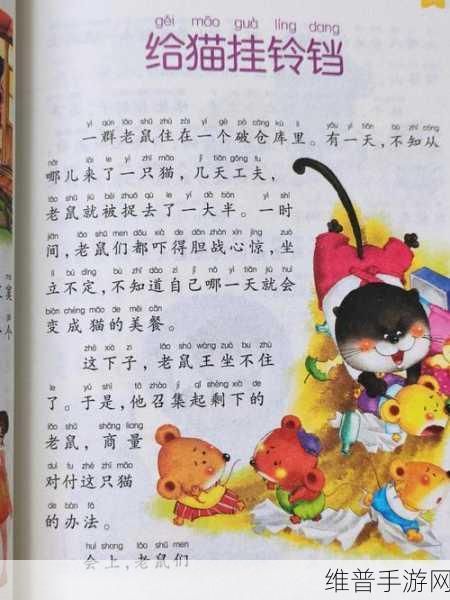 gěi māo guà líng dang
给猫挂铃铛
yì qún lǎo shǔ zhù zài yí gè pò cāng kù lǐ yǒu yì tiān bù zhī cóng
一群老鼠住在一个破仓库里。有一天,不知从
nǎr lái le yì zhī māo jǐ tiān gōng fu
哪儿来了一只猫,几天工夫,
lǎo shǔ jiù bèi zhuō qù le yí dà bàn yì shí
老鼠就被捉去了一大半。一时
jiān lǎo shǔ men dōu xià de dǎn zhàn xīn jīng zuò
间,老鼠们都吓得胆战心惊,坐
lì bú dìng bù zhī dào zì jǐ nǎ yì tiān jiù huì
立不定,不知道自己哪一天就会
biàn chéng māo de měi cān
变成猫的美餐。
zhè xià zi lǎo shǔ wáng zuò bu zhù
这下子,老鼠王坐不住
le yú shì tā zhào jí qǐ shèng xià de
了。于是,他召集起剩下的
lǎo shǔ shāng liang
老鼠,商量
duì fu zhè zhī māo
对付这只猫
de bàn fǎ
的办法。
huì shang lǎo shǔ men
会上,老鼠们
个
维普手游网